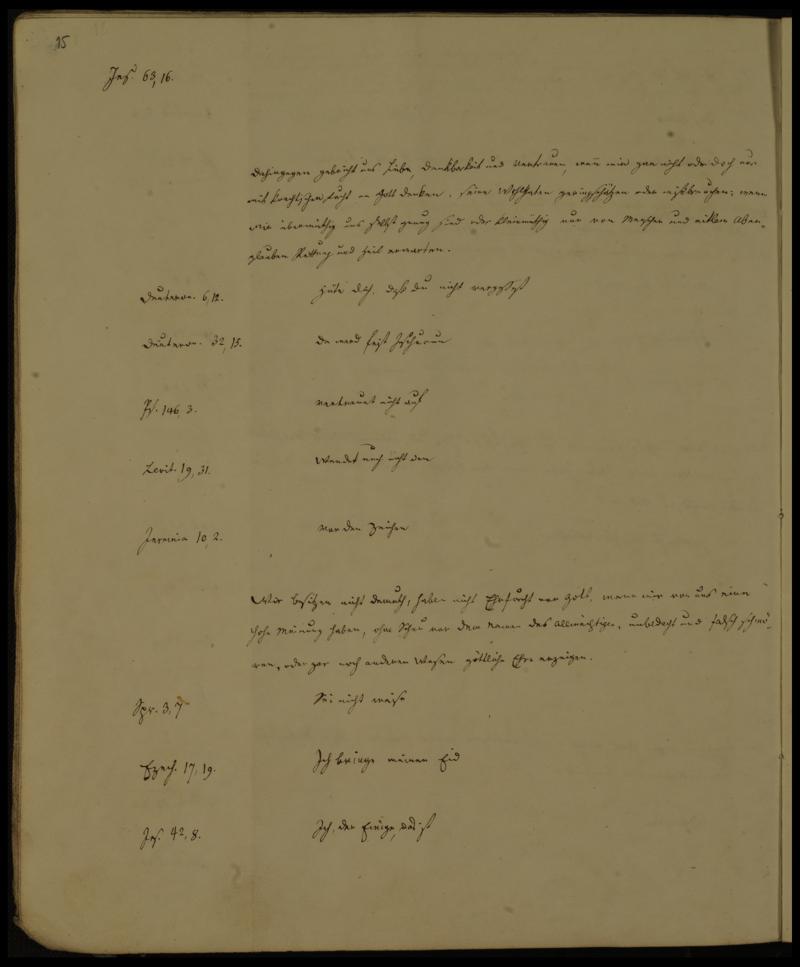 15
Jes. 63, 16.
Dahingegen gebricht uns Liebe, Dankbarkeit und Vertrauen, wenn wir gar nicht oder doch nur
mit knechtischer Furcht an Gott denken, seine Wohlthaten geringschätzen oder mißbrauchen; wenn
wir übermüthig uns selbst genug sind oder kleinmüthig nur von Menschen und eitlem Aber-
glauben Rettung und Heil erwarten.
Deuteron. 6, 12. Hüte dich, daß du nicht vergissest
Deuteron. 32, 15. Da ward feist Jeschurun
Ps. 146, 3. Vertrauet nicht auf
Levit. 19, 31. Wendet euch nicht den
Jeremia 10, 2. Vor den Zeichen
Wir besitzen nicht Demuth, haben nicht Ehrfurcht vor Gott, wenn wir von uns eine
hohe Meinung haben, ohne Scheu vor dem Namen des Allmächtigen, unbedacht und falsch schwö-
ren, oder gar noch anderen Wesen göttliche Ehre erzeigen.
Spr. 3, 7 Sei nicht weise
Ezech. 17, 19. Ich bringe meinen Eid
Jes. 42, 8. Ich, der Einige, das ist